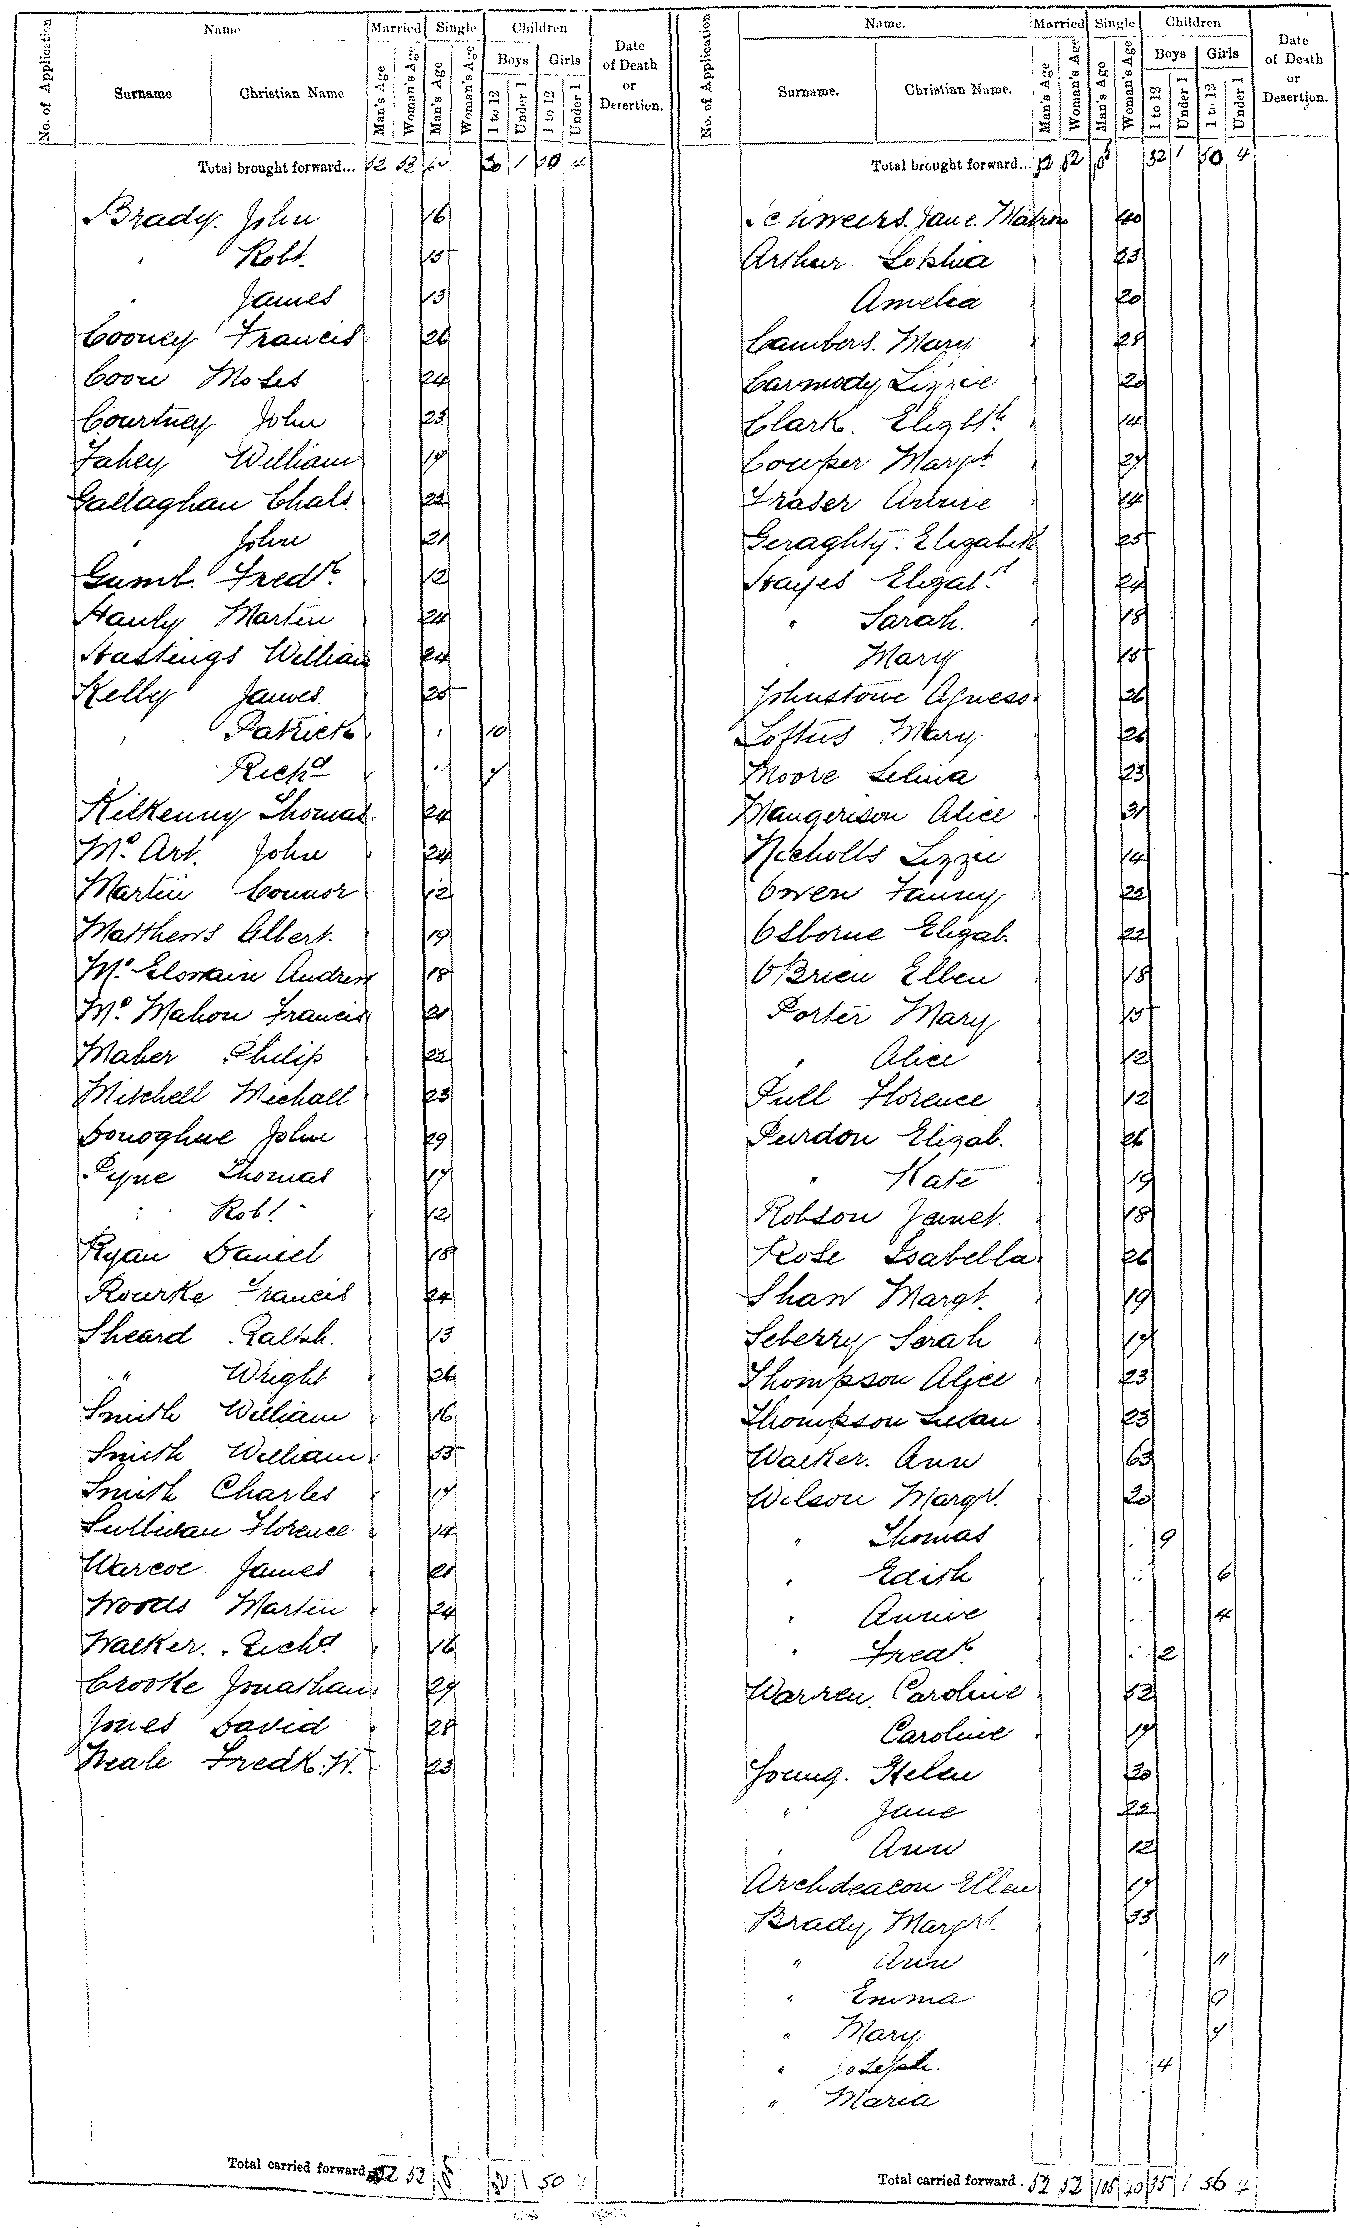 No. of Application Name Married Single Children Date of Death or Desertion.
Surname Christian Name Man's Age Woman's Age Man's Age Woman's Age Boys 1 to 12 Under 1 Girls 1 to 12 Under 1
Total brought forward... 52 52 1 50 4
Brady. John 16
" Robt. 15
" James 13
Cooney Francis 26
Coon Moses 24
Courtney John 23
Fahey William 17
Gallaghan Chals 22
" John 21
Gumb. Fredk. 12
Hanly Martin 24
Hastings William 24
Kelly James 25
" Patrick 10
Richd 7
Kilkenny Thomas 24
Mc. Art. John 24
Martin Connor 12
Matthews Albert. 19
Andrew 18
Mc. Mahon Francis 21
Maher Philip 22
Mitchell Michall 23
Donoghue John 29
Pyne Thomas 17
" Robt. 12
Ryan Daniel 18
Rourke Francis 24
Sheard Ralph. 13
" Wright 26
Smith William 16
Smith William
Smith Charles 17
Sullivan Florence 14
Warcoe James 21
Woods Martin 24
Walker. Richd 16
Crooke Jonathan 29
Jones David 28
Neale Fredk. W. 23
Total carried forward 52 52 1 50
No. of Application Name. Married Single Children Date of Death or Desertion.
Surname. Christian Name. Man's Age Woman's Age Man's Age Woman's Age Boys 1 to 12 Under 1 Girls 1 to 12 Under 1
Total brought forward... 52 52 32 1 50 4
Schmeers. Jane. Matron 40
Arthur Sophia 23
Amelia 20
Cambers. Mary 28
Carmody Lizzie 20
Clark. Elizbth 14
Cowper Margt. 27
Fraser Annie 14
Geraghty. Elizabeth 25
Hayes Elizabt. 24
" Sarah. 18
Mary 15
Johnstone Agness. 26
Loftus Mary 26
Moore Selina 23
Mangerison Alice 31
Nicholls Lizzie 14
Owen Fanny 22
Osborne Elizab. 22
O'Brien Ellen 18
Porter Mary 15
" Alice 12
Pull Florence 12
Purdon Elizab. 26
" Kate 19
Robson Janet. 18
Rose Isabella 26
Shaw Margt. 19
Seberry Sarah 17
Thompson Alice 23
Thompson Susan 23
Walker. Ann 63
Wilson Margt. 30
" Thomas 9
" Edith 6
" Annie 4
" Fredk. 2
Warren. Caroline 52
Caroline 17
Young. Helen 30
" Jane 22
" Ann 12
Archdeacon Ellen 17
Brady Margrt. 35
" Ann 11
" Emma 9
" Mary 7
" Joseph. 4
" Maria
Total carried forward. 52 52 105 40 35 1 56 4